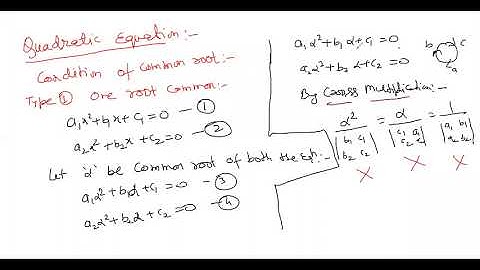 Quadratic Equation:-
Condition of Common root:-
Type ① One root Common:-
a₁x²+b₁x+c₁=0 — ①
a₂x²+b₂x+c₂=0 — ②
Let 'α' be Common root of both the Eqⁿ:-
a₁α²+b₁α+c₁=0 — ③
a₂α²+b₂α+c₂=0 — ④
a₁α²+b₁α+c₁=0
a₂α²+b₂α+c₂=0
b c a
By Cross Multiplication:-
α² = α = 1
|b₁ c₁| |c₁ a₁| |a₁ b₁|
|b₂ c₂| |c₂ a₂| |a₂ b₂|
× × ×